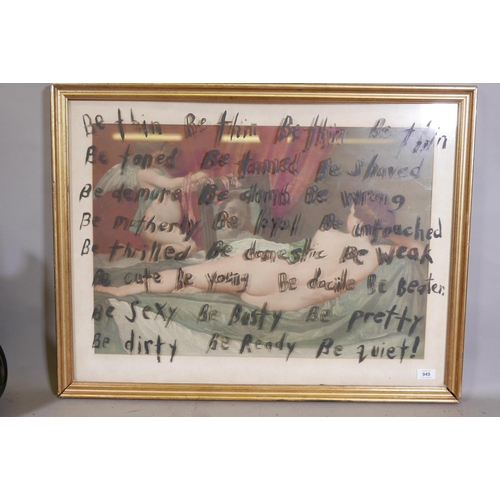 Be thin Be thin Be thin Be thin
Be toned Be tanned Be shaved
Be demure Be dumb Be wrong
Be motherly Be Be untouched
Be thrilled Be domestic Be weak
Be cute Be young Be docile Be Beaten.
Be Sexy Be Busty Be pretty
Be dirty Be Ready Be quiet!
940